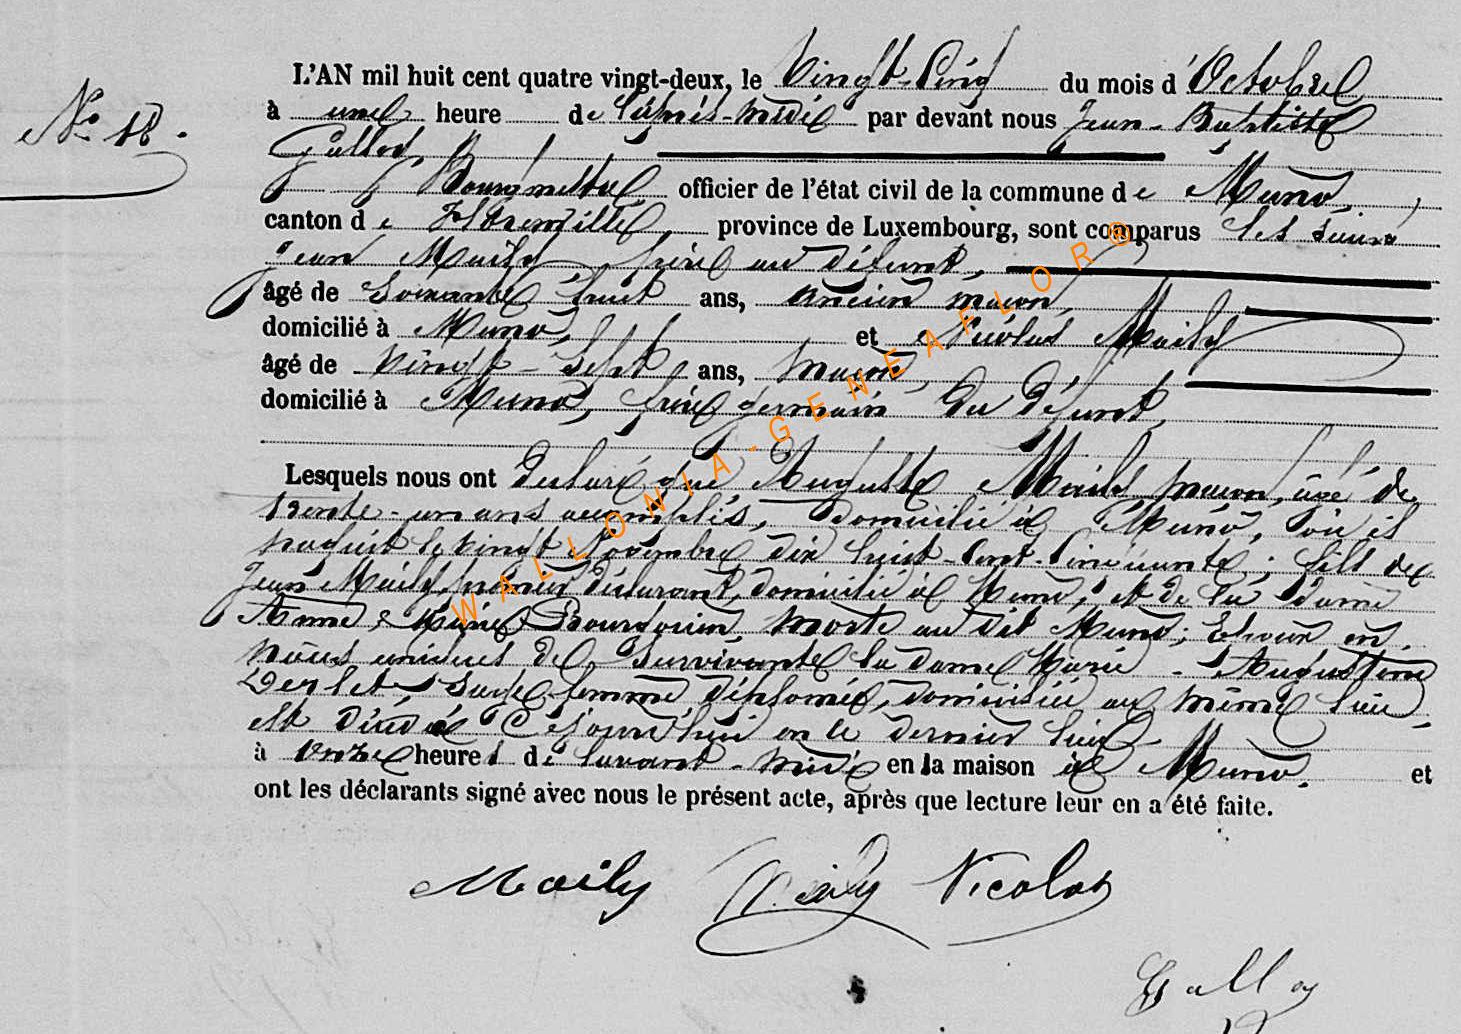 L'AN mil huit cent quatre vingt-deux, le Vingt-Cinq du mois d'Octobre
N° 18.
à une heure de l'après-midi par devant nous Jean-Baptiste
Gallot, Bourgmestre officier de l'état civil de la commune de Muno,
canton de Florenville, province de Luxembourg, sont comparus les sieurs
Jean Maily, père au défunt,
âgé de Soixante huit ans, ancien maçon,
domicilié à Muno, et Nicolas Maily
âgé de vingt-sept ans, maçon,
domicilié à Muno, frère germain du défunt,
Lesquels nous ont déclaré que Auguste Maily, maçon, âgé de
trente-un ans accomplis, domicilié à Muno, où il
naquit le vingt Novembre dix huit-cent-cinquante, fils de
Jean Maily, premier déclarant, domicilié à Muno, et de la dame
Anne Marie Bourguin, morte au dit Muno; Epoux en
noces uniques de survivante la dame Marie-Augustine
sage-femme diplomée, domiciliée au même lieu,
est décédé Cejourd'hui en ce dernier lieu
à onze heures de l'avant-midi en la maison à Muno. et
ont les déclarants signé avec nous le présent acte, après que lecture leur en a été faite.
Maily Maily Nicolas
WALLONIA-GENEAFLOR®